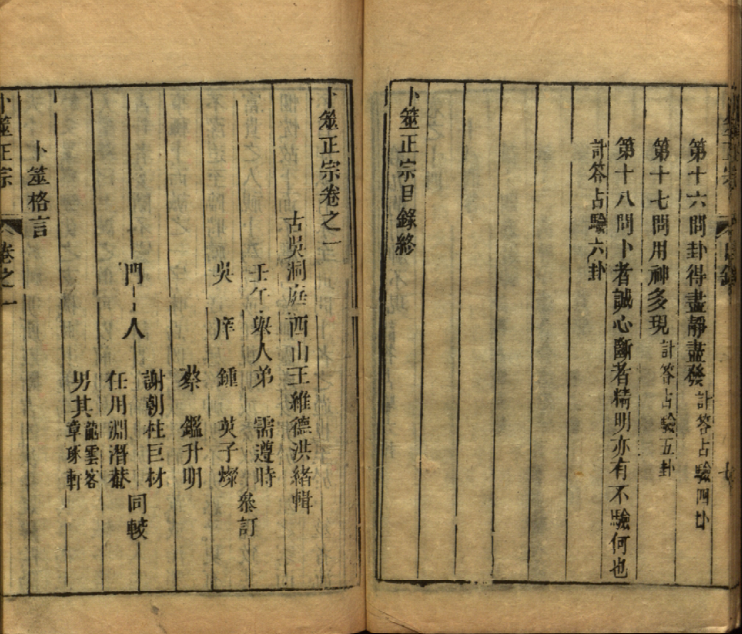 第十六問卦得盡靜盡發 計答占驗四卦
第十七問用神多現 計答占驗五卦
第十八問卜者誠心斷者精明亦有不驗何也
計答占驗六卦
卜筮正宗目錄終
卜筮正宗卷之一
古吳洞庭西山王維德洪緒輯
壬午舉人弟 需遵時
參訂
吳庠 鍾英子燦
蔡鑑升明
門人 謝朝柱巨材
任用淵潛菴
同較
男其龍雲客
章琢軒
卜筮格言
卜筮正宗
卷之一